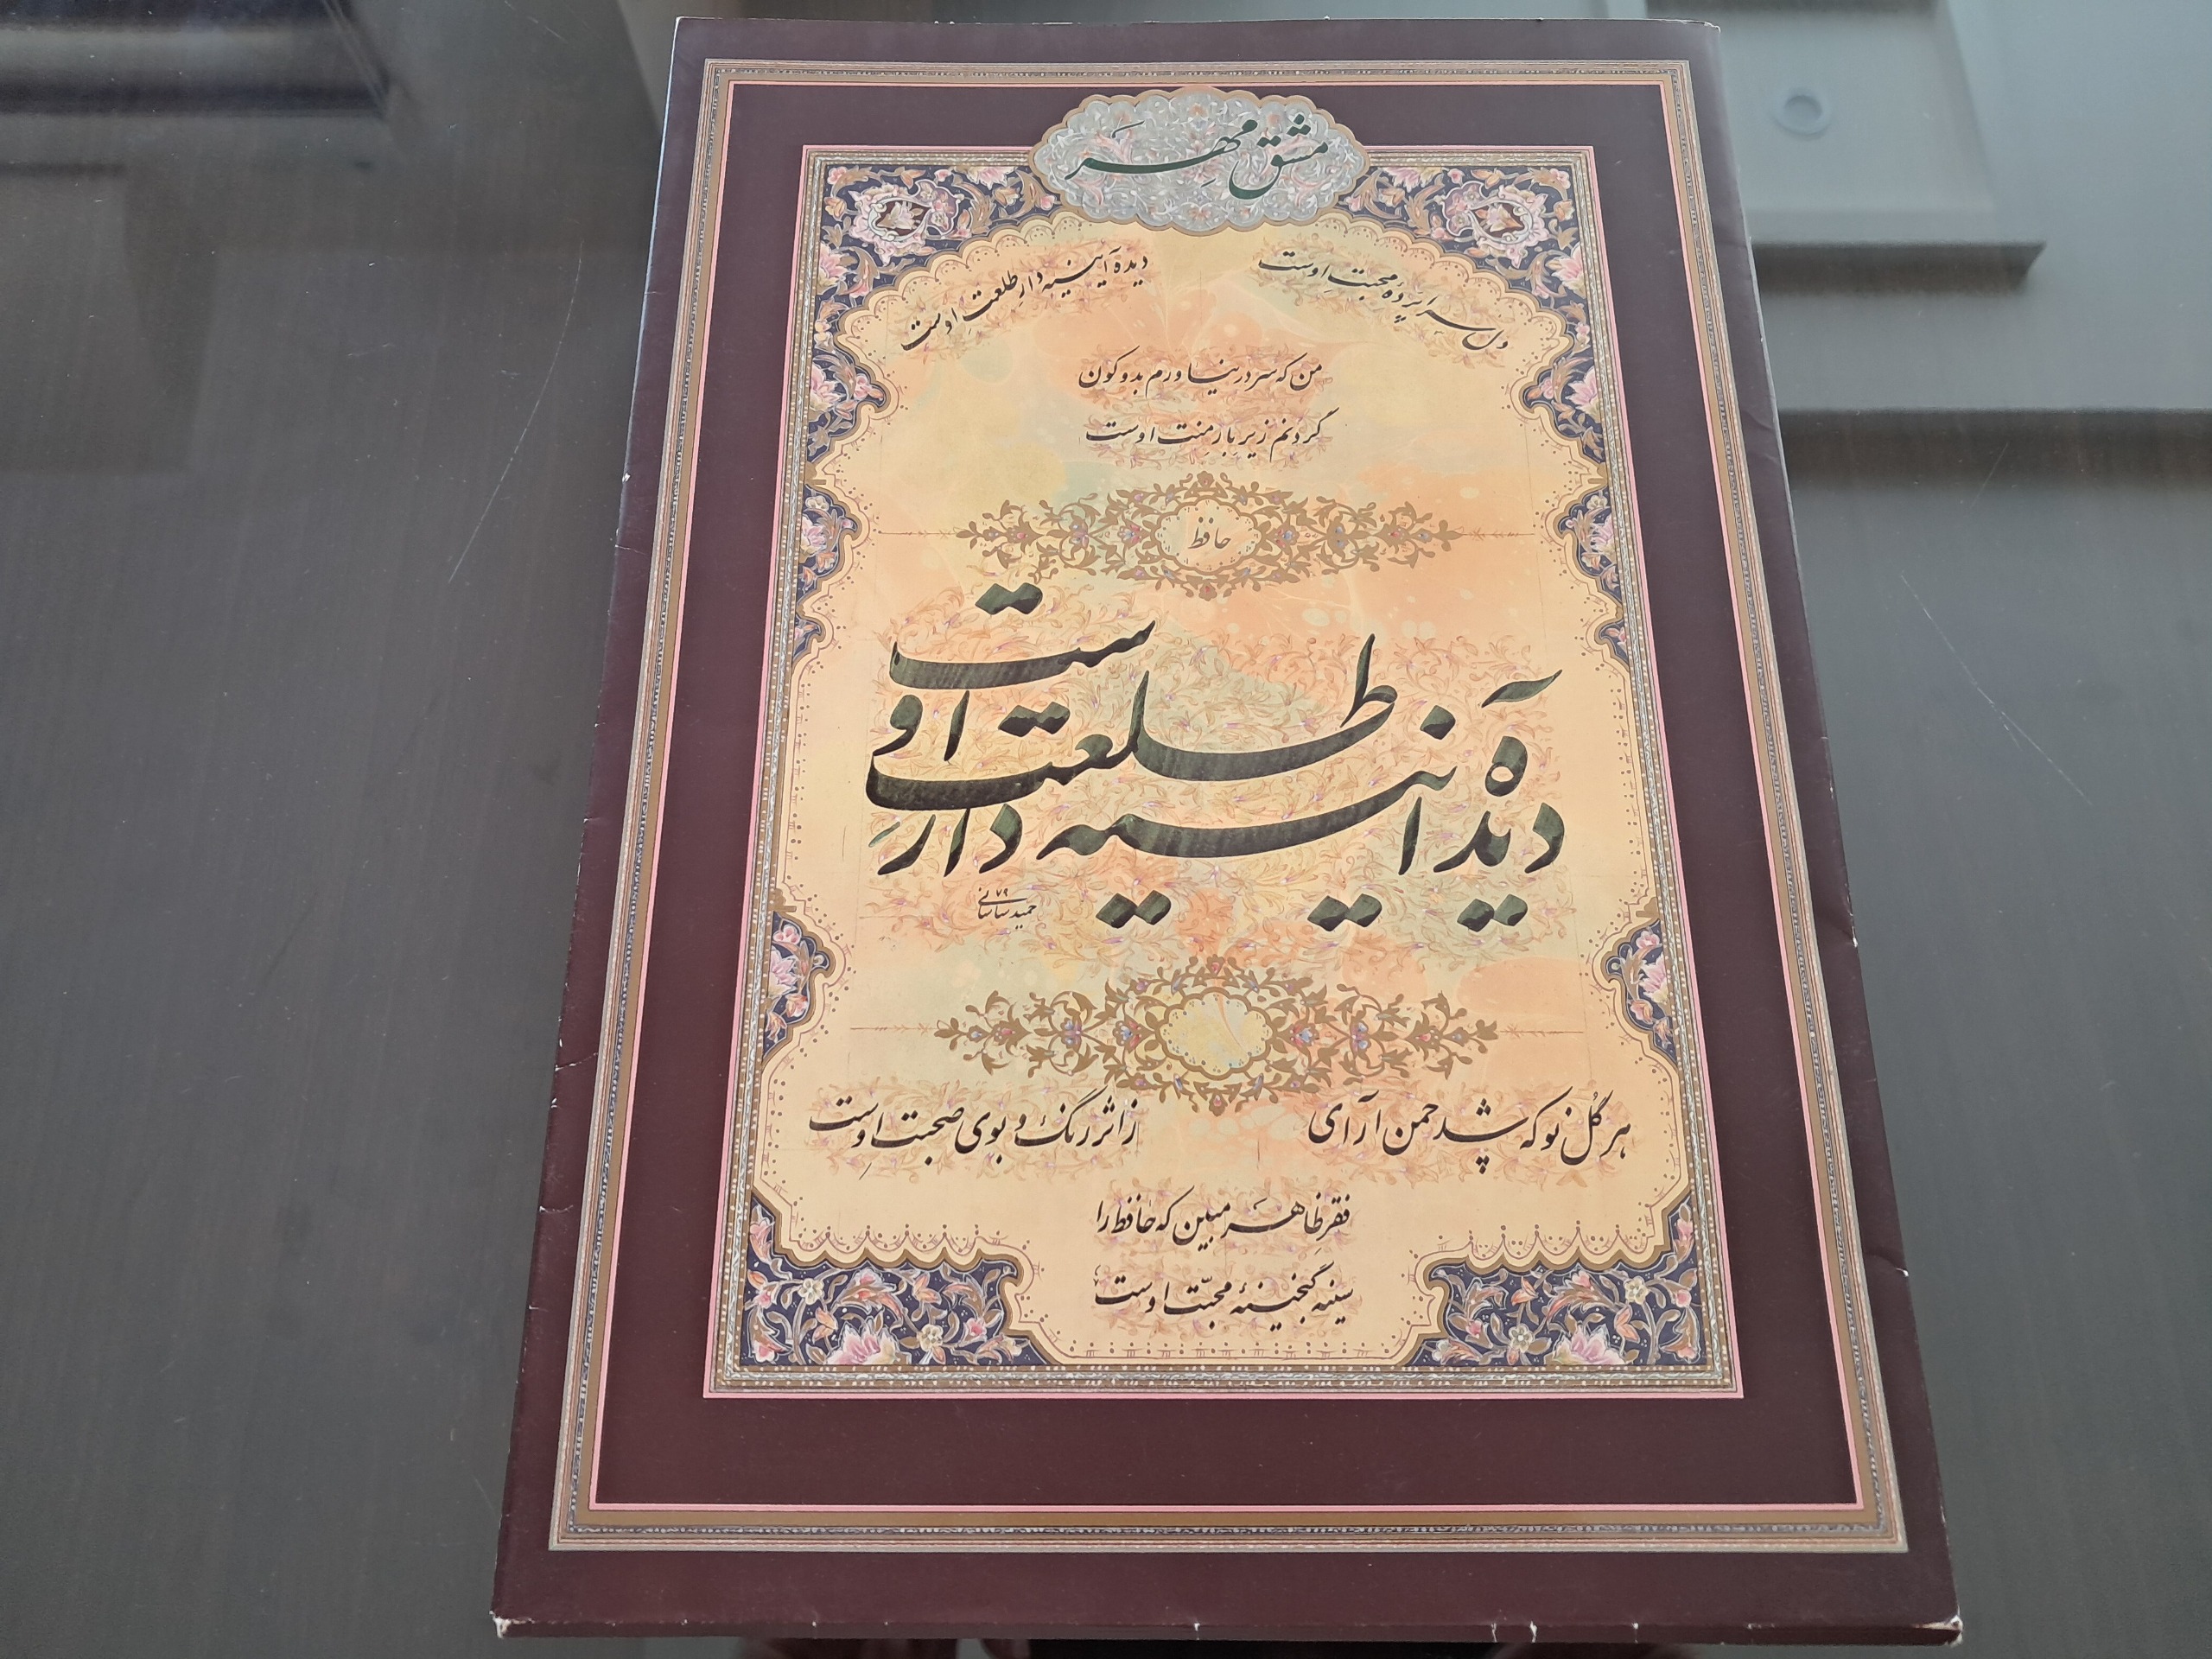 مشق مِهر
دل سراپردهٔ محبت اوست
دیدهٔ آینه دار طلعت اوست
من که سر در نیاورم بدو کون
گردنم زیر بار منت اوست
حافظ
دیده آیینه دارِ طلعت اوست
حمید ساسانی ۷۹
هر گل نو که شد چمن آرای
ز اثر رنگ و بوی صحبت اوست
فقر ظاهر مبین که حافظ را
سینه گنجینهٔ محبّت اوست